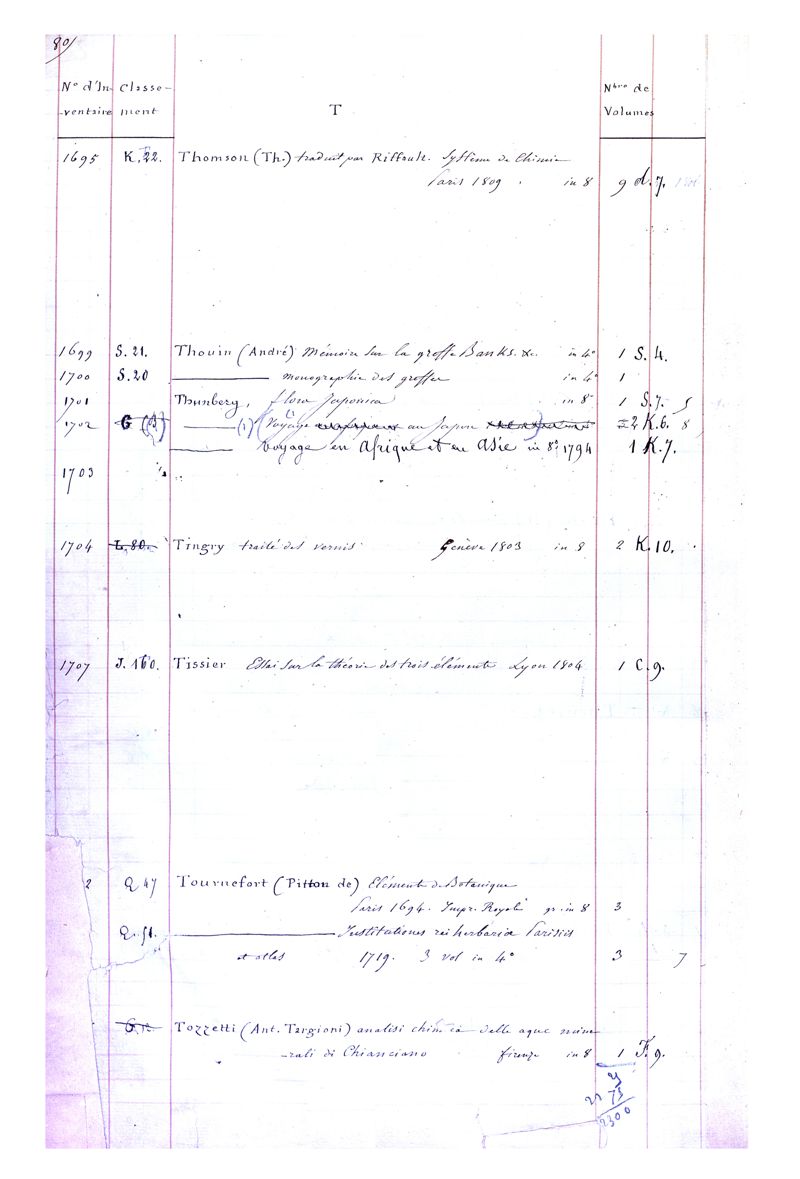 80
N° d'In- Classe- Nbre de
-ventaire ment T Volumes
1695 K.22. Thomson (Th.) traduit par Riffault. Système de Chimie
Paris 1809 . in 8 9 d.7.
1699 S.21. Thouin (André) Mémoire sur la greffe Banks. &c. in 4° 1 S.4.
1700 S.20 ——— monographie des greffes in 4° 1
1701 Thunberg, flora Japonica in 8° 1 S.7. 5
1702 G ——— (1) (Voyage au Japon) 2 K.6. 8
——— Voyage en Afrique et en Asie in 8° 1794 1 K.7.
1703
1704 L.80. Tingry traité des vernis Genève 1803 in 8 2 K.10.
1707 J.160. Tissier Essai sur la théorie des trois éléments Lyon 1804 1 C.9.
2 Q 47 Tournefort (Pitton de) Eléments de Botanique
Paris 1694. Impr. Royale gr. in 8 3
Q.51. ——— Institutiones rei herbariæ Parisiis
et atlas 1719. 3 vol in 4° 3 7
Tozzetti (Ant. Targioni) analisi chimica delle aque mine
-rali di Chianciano firenze in 8 1 F.9.
75
2300